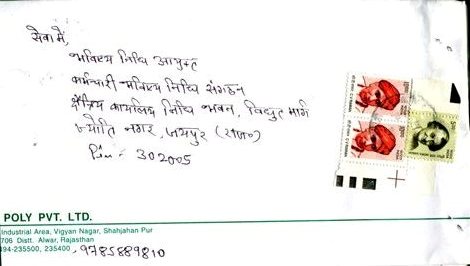 सेवा में,
भविष्य निधि आयुक्त
कर्मचारी भविष्य निधि संगठन
क्षेत्रिय कार्यालय निधि भवन, विद्युत मार्ग
ज्योति नगर, जयपुर (राज०)
Pin - 302005
POLY PVT. LTD.
Industrial Area, Vigyan Nagar, Shahjahan Pur
706 Distt. Alwar, Rajasthan
494-235500, 235400, 9785889810